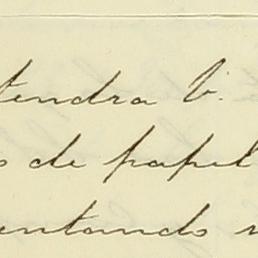 tendra V.
de papel
entando